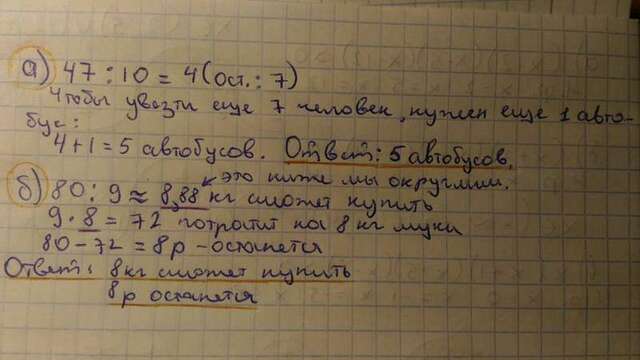 а) 47 : 10 = 4 (ост.: 7)
Чтобы увезти еще 7 человек, нужен еще 1 авто-
бус:
4 + 1 = 5 автобусов. Ответ: 5 автобусов.
б) 80 : 9 ≈ 8,88 кг сможет купить
это ниже мы округлим.
9 · 8 = 72 потратит на 8 кг муки
80 - 72 = 8 р - останется
Ответ: 8 кг сможет купить
8 р останется